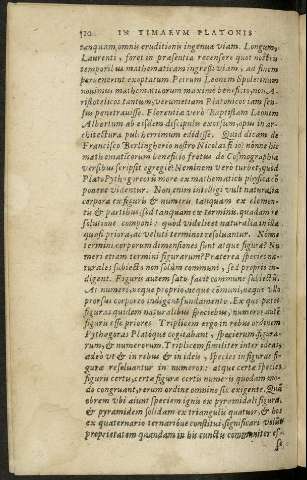 120 IN TIMAEVM PLATONIS
tanquam omnis eruditionis ingenua viam. Longum,
Laurenti, foret in præsentia recensere quot nostris
temporibus mathematicam ingressi viam, ad finem
peruenerint exoptatum Petrum Leonem Spoletinum
nouimus mathematicorum maximè beneficio, non A-
ristotelicos tantum, verumetiam Platonicos iam sen-
sus penetrauisse. Florentia verò Baptistam Leonem
Albertum ab eisdem disciplinis excultum, opus in ar-
chitectura pulcherrimum edidisse. Quid dicam de
Francisco Berlingherio nostro Nicolai fi io? nónne his
mathematicorum beneficio fretus de Cosmographia
versibus scripsit egregiè? Neminem verò turbet, quòd
Plato Pythagoreorū more ex mathematicis physica cō-
ponere videtur. Non enim intelligi vult naturalia
corpora ex figuris & numeris tanquam ex elemen-
tis & partibus, sed tanquam ex terminis quadam re-
solutione componi: quòd videlicet naturalia in illa
quasi priora, ac velut terminos resoluantur. Nónne
termini corporum dimensiones sunt atque figuræ? Nu-
meri etiam termini figurarum? Præterea species na-
turales subiecto non solùm communi, sed proprio in-
digent. Figuris autem satu facit commune subiectū.
At numeri, neque proprio, neque cōmuni, neque vllo
prorsus corporeo indigent fundamento. Ex quo patet
figuras quidem naturalibus speciebus, numeros autē
figuris esse priores. Triplicem ergo in rebus ordinem
Pythagoras Platóque cogitabant, specierum figura-
rum, & numerorum. Triplicem similiter inter ideas,
adeò vt & in rebus & in ideis, species in figuras fi-
guræ resoluantur in numeros: atque certæ species
figuris certis, certæ figuræ certis numeris quodam mo-
do congruant, rerum ordine omnino sic exigente. Quā
obrem vbi aiunt speciem ignis ex pyramidali figura,
& pyramidem solidam ex triangulis quatuor, & hos
ex quaternario ternarióve constitui, significari volunt
proprietatem quandam in his cunctis communiter es-
se